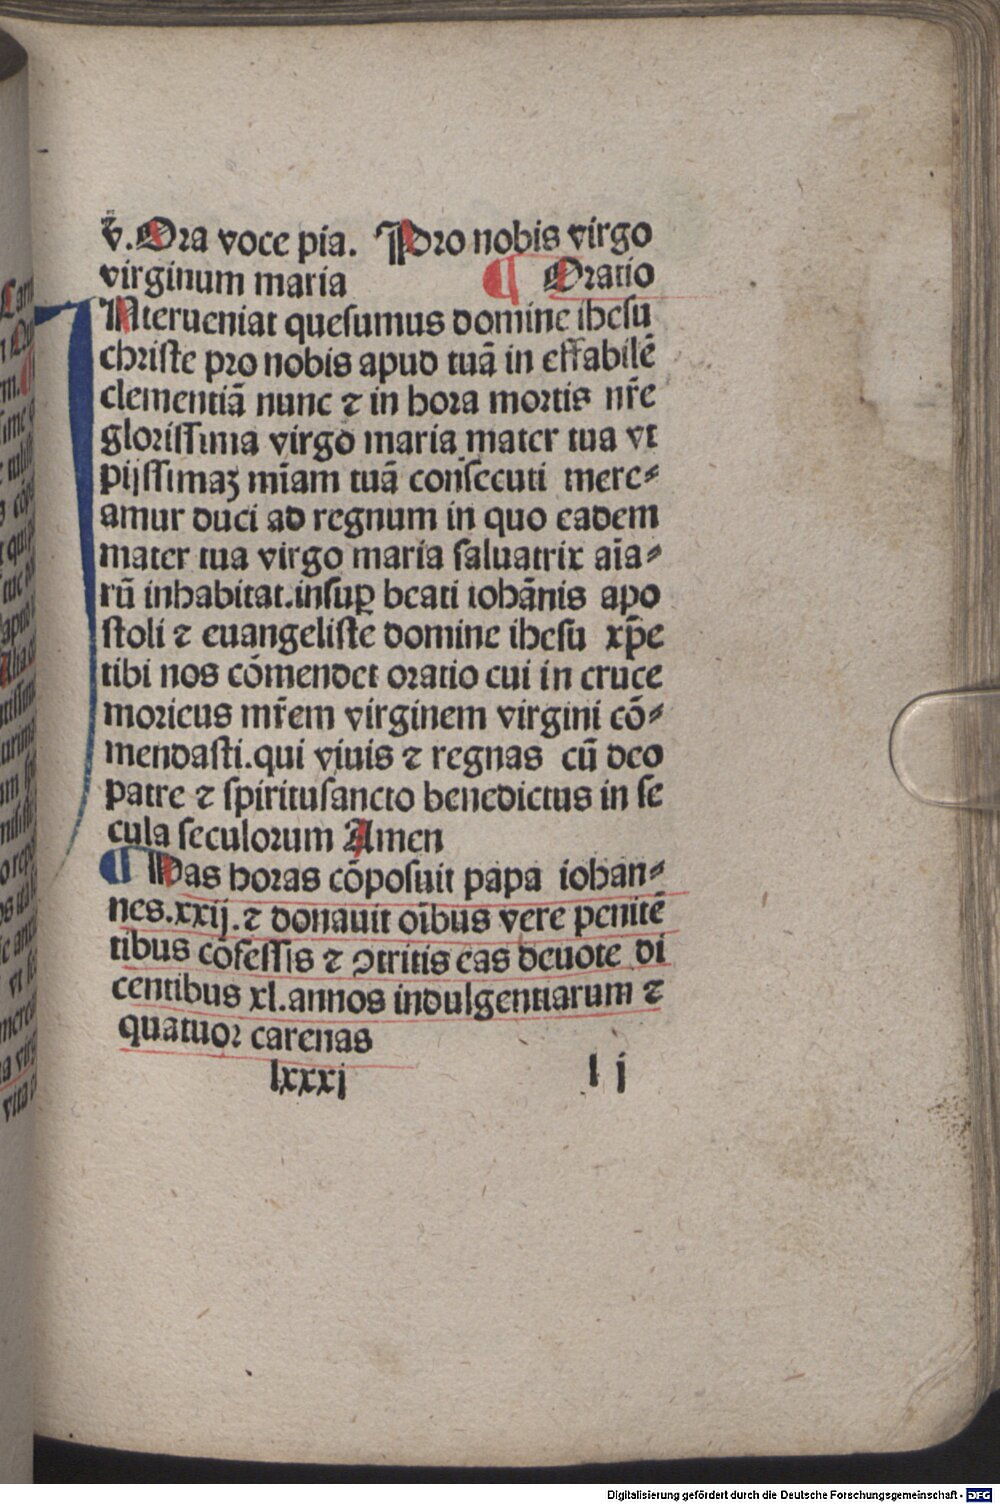 v̄. Ora voce pia. Pro nobis virgo
virginum maria ¶ Oratio
INterueniat quesumus domine ihesu
christe pro nobis apud tuā in effabilē
clementiā nunc ⁊ in hora mortis nr̄e
glorissima virgo maria mater tua vt
pijssimaꝫ mīam tuā consecuti mere⸗
amur duci ad regnum in quo eadem
mater tua virgo maria saluatrix aīa⸗
rū inhabitat.insuꝑ beati iohānis apo
stoli ⁊ euangeliste domine ihesu xp̄e
tibi nos cōmendet oratio cui in cruce
moricus mr̄em virginem virgini cō⸗
mendasti.qui viuis ⁊ regnas cū deo
patre ⁊ spiritusancto benedictus in se
cula seculorum Amen
¶ Has horas cōposuit papa iohan⸗
nes.xxij.⁊ donauit oībus vere penitē
tibus cōfessis ⁊ ↄtritis eas deuote di
centibus xl.annos indulgentiarum ⁊
quatuor carenas
lxxxj l j
Digitalisierung gefördert durch die Deutsche Forschungsgemeinschaft - DFG